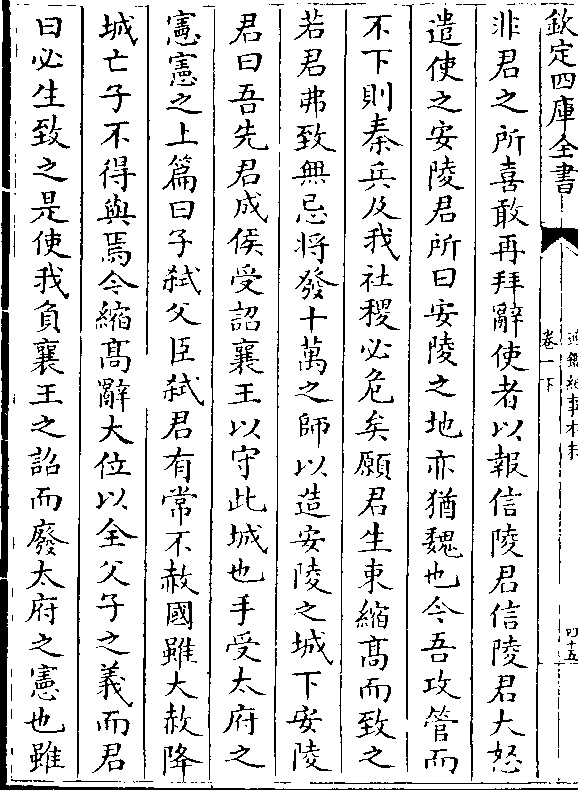 欽定四庫全書
通鑑紀事本末
卷一下
四十五
非君之所喜敢再拜辭使者以報信陵君信陵君大怒
遣使之安陵君所曰安陵之地亦猶魏也今吾攻管而
不下則秦兵及我社稷必危矣願君生束縮髙而致之
若君弗致無忌將發十萬之師以造安陵之城下安陵
君曰吾先君成侯受詔襄王以守此城也手受太府之
憲憲之上篇曰子弑父臣弑君有常不赦國雖大赦降
城亡子不得與焉今縮髙辭大位以全父子之義而君
曰必生致之是使我負襄王之詔而廢太府之憲也雖